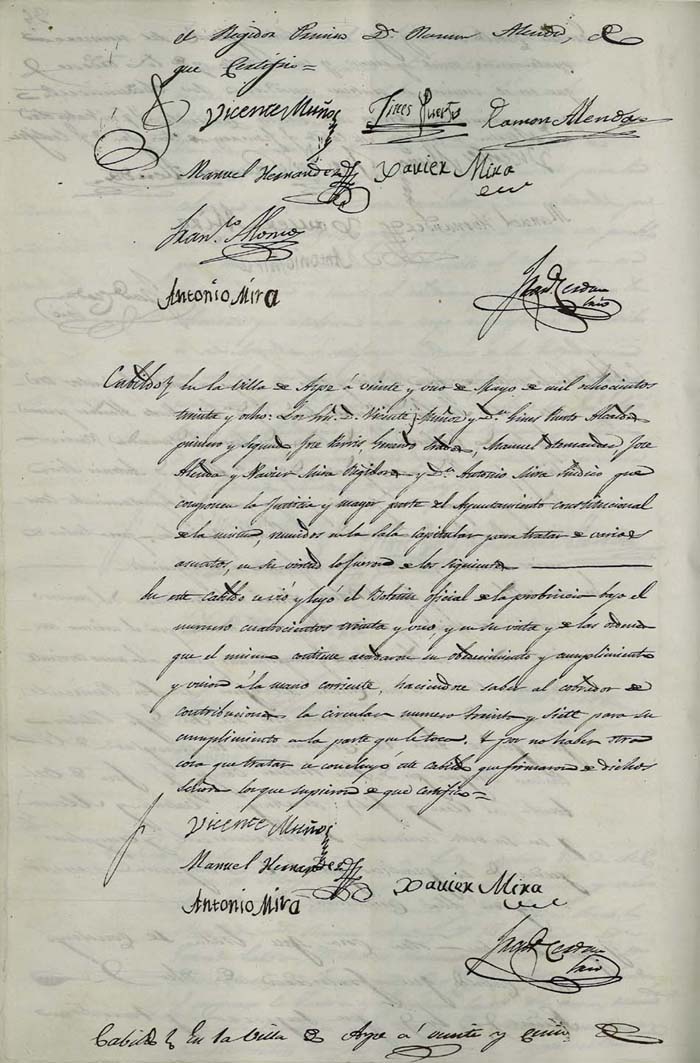 el Regidor Primero Dn. Ramon Alenda, de
que Certifico=
Vicente Muñoz Gines Puerto Ramon Alenda
Manuel Hernandez Xavier Mira
Fran.co Alonso
Antonio Mira
Cerdan
Cabildo En la Villa de Aspe á veinte y uno de Mayo de mil ochocientos
treinta y ocho: Los Sres. D. Vicente Muñoz y Dn. Gines Puerto Alcaldes
primero y segundo Jose Manuel Hernandez, Jose
Alenda y Xavier Mira Regidores y Dn. Antonio Mira Sindico que
componen la Justicia y mayor parte del Ayuntamiento constitucional
de la misma, reunidos en la Sala Capitular para tratar de varios
asuntos, en su virtud lo fueron de los siguientes
En este cabildo se vió y leyó el Boletin oficial de la probincia bajo el
numero cuatrocientos treinta y uno, y en su vista y de las ordenes
que el mismo contiene acordaron su obedecimiento y cumplimiento
y union á la mano corriente, haciendose saber al cobrador de
contribuciones la circular numero treinta y siete para su
cumplimiento en la parte que le toca. Y por no haber otra
cosa que tratar se concluyó este cabildo que firmaron de dichos
Señores los que supieron de que certifico=
Vicente Muñoz
Manuel Hernandez
Xavier Mira
Antonio Mira
Cerdan
Cabildo En la Villa de Aspe á veinte y